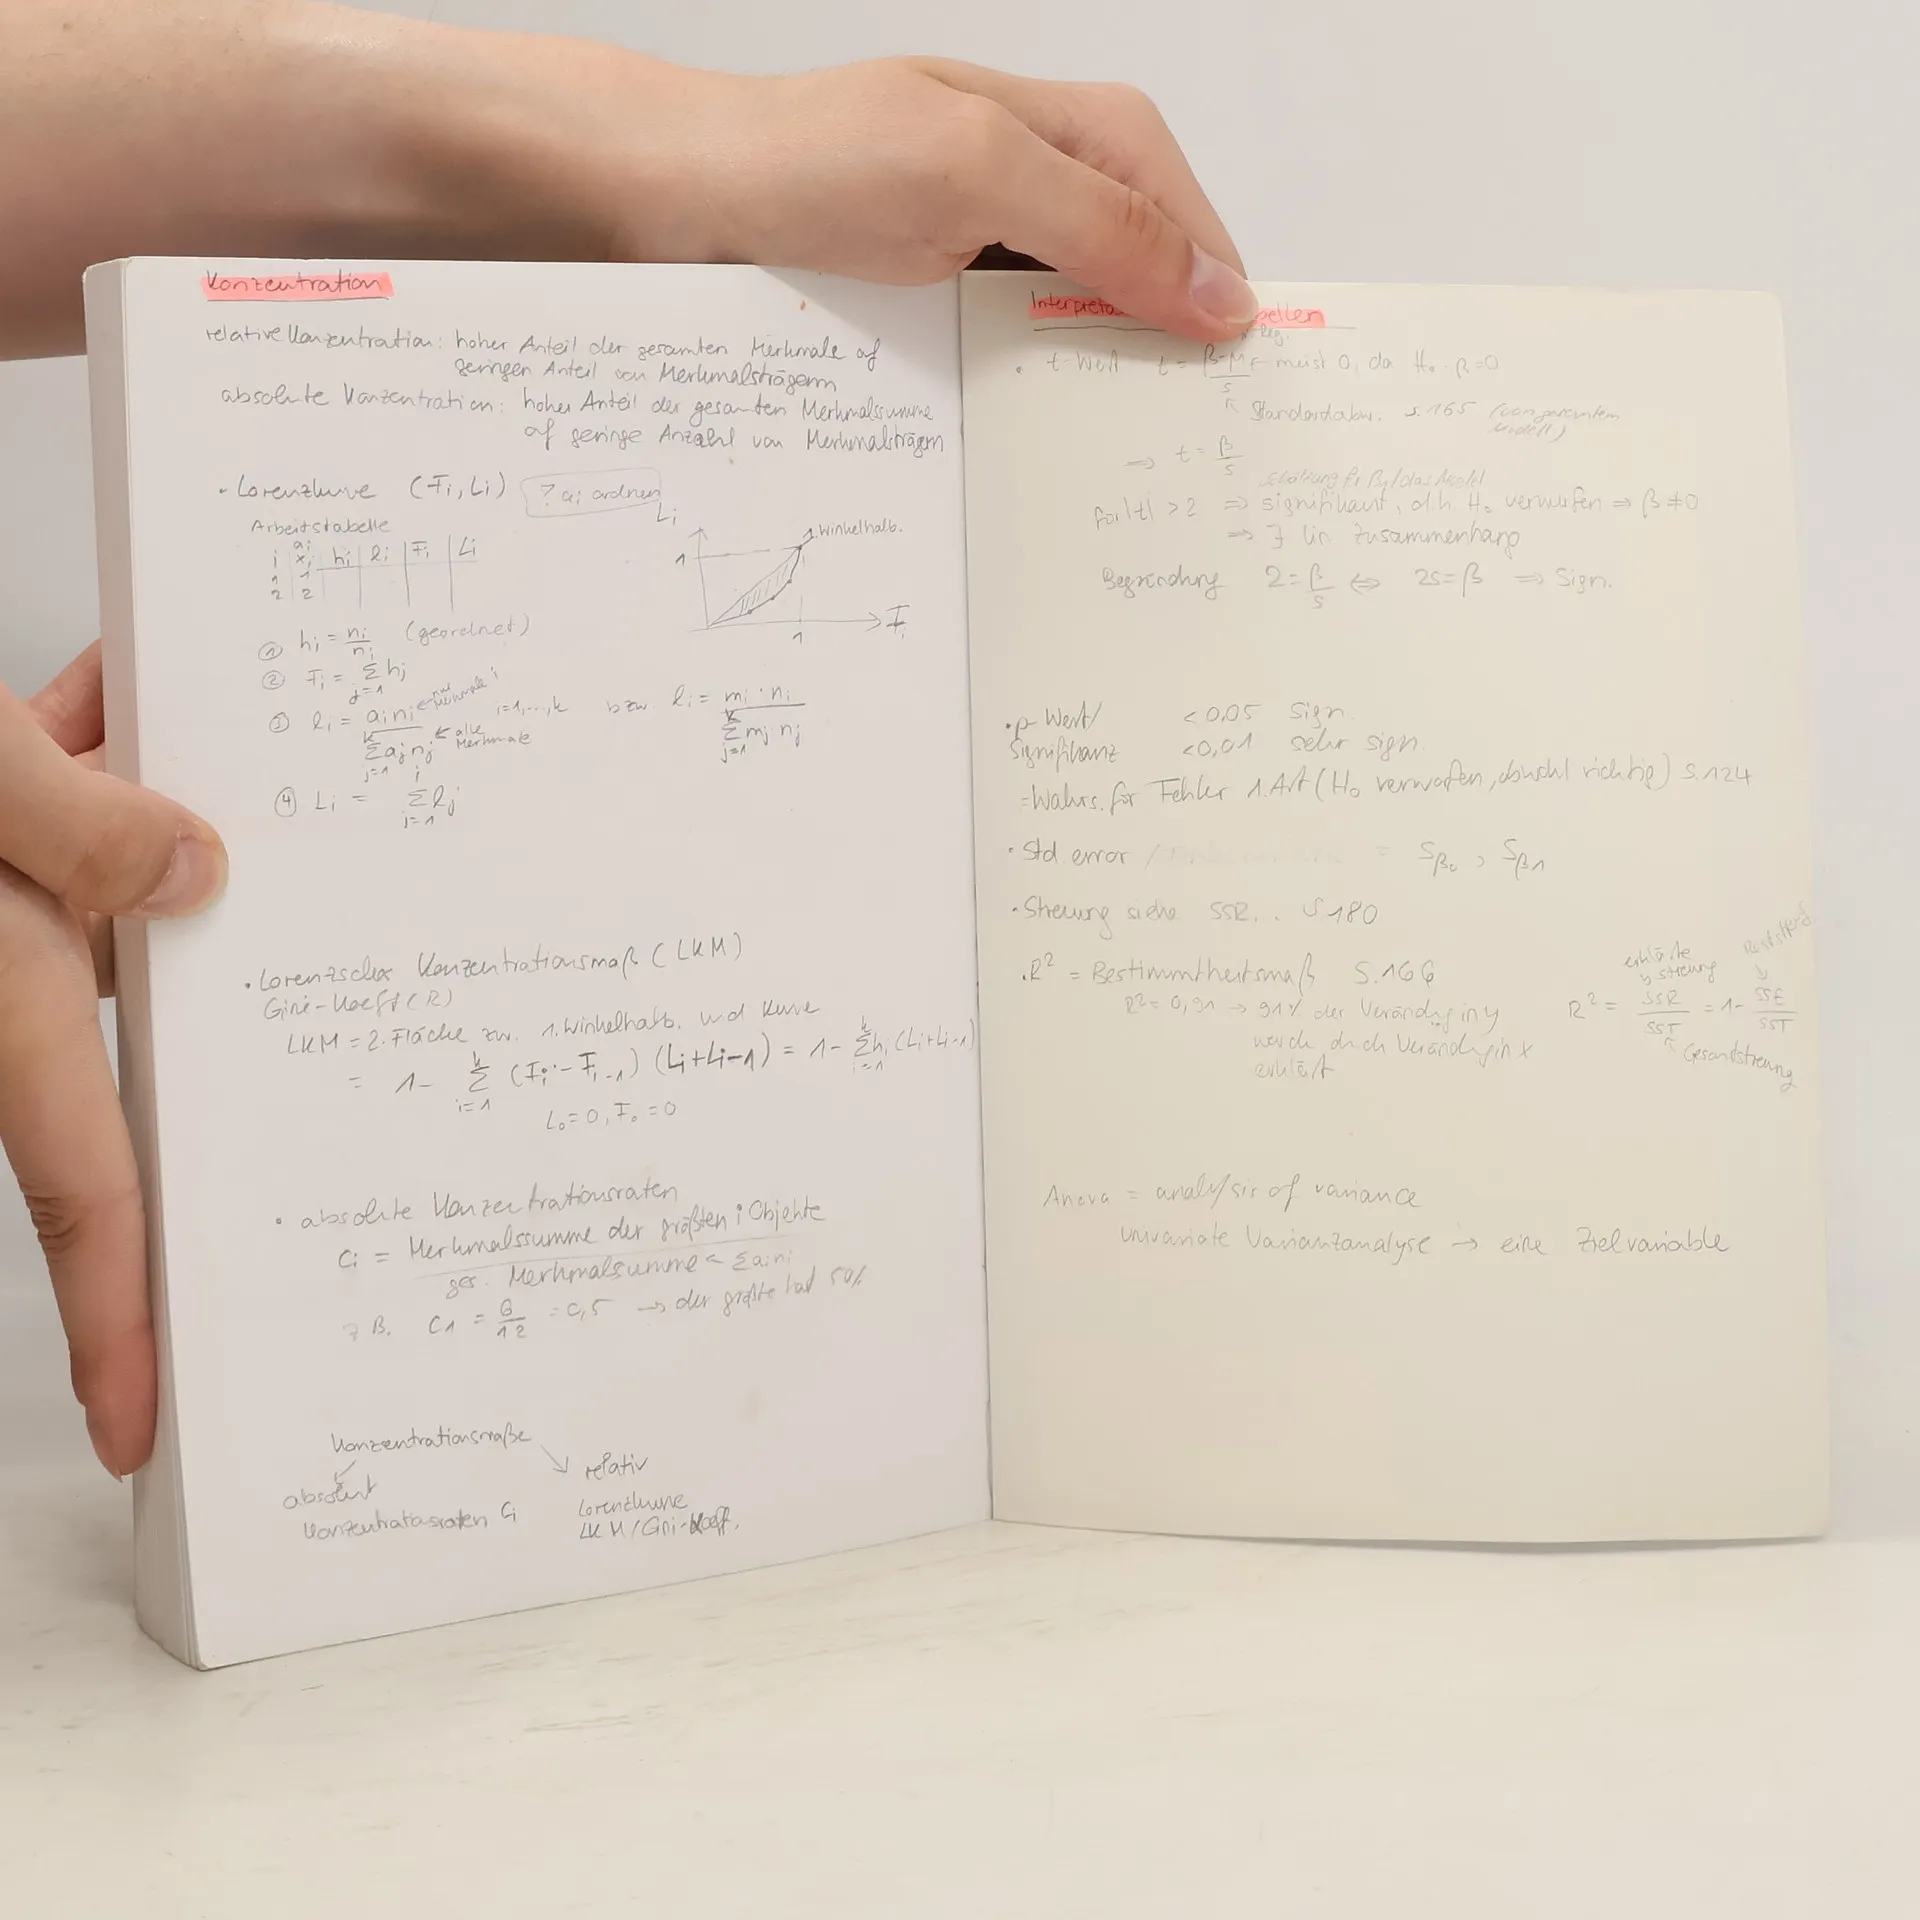 Konzentration
relative Konzentration: hoher Anteil der gesamten Merkmale auf
geringen Anteil von Merkmalsträgern
absolute Konzentration: hoher Anteil der gesamten Merkmalssumme
auf geringe Anzahl von Merkmalsträgern
- Lorenzkurve (Fi, Li) ? ai ordnen
Arbeitstabelle
i ai xi hi li Fi Li
1 1
2 2
Li 1 1. Winkelhalb. 1 Fi
① hi = ni/nj (geordnet)
② Fi = Σ hj j=1
③ li = ai ni / Σ aj nj k j=1 ← nur Merkmale i ← alle Merkmale i=1,...,k bzw. li = mi · ni / Σ mj nj k j=1
④ Li = Σ lj i j=1
• Lorenzsches Konzentrationsmaß (LKM)
Gini-Koeff (R)
LKM = 2·Fläche zw. 1. Winkelhalb. und Kurve
= 1 - Σ (Fi - Fi-1) (Li + Li-1) = 1 - Σ hi (Li + Li-1)
k i=1 k i=1
L₀ = 0, F₀ = 0
• absolute Konzentrationsraten
Ci = Merkmalssumme der größten i Objekte
ges. Merkmalsumme ← Σ ai ni
z B. C1 = 6/12 = 0,5 → der größte hat 50%
Konzentrationsmaße
absolut
Konzentrationsraten Ci
relativ
Lorenzkurve
LKM / Gini-Koeff.
Interpreta bellen
Reg.
• t-Wert t = β-μ/s ← meist 0, da H₀: β=0
Standardabw. S.165 (von gesamtem
Modell)
⇒ t = β/s
Schätzung für β₁/das Model
für |t| > 2 ⇒ signifikant, d.h. H₀ verwerfen ⇒ β ≠ 0
⇒ ∃ lin Zusammenhang
Begründung 2 = β/s ⇔ 2s = β ⇒ Sign.
• p-Wert/ < 0,05 Sign.
Signifikanz < 0,01 sehr sign.
= Wahrs. für Fehler 1. Art (H₀ verworfen, obwohl richtig) S.124
• Std. error / = Sβ₀, Sβ1
• Streuung siehe SSR.. S 180
• R² = Bestimmtheitsmaß S.166
R² = 0,91 → 91% der Veränderg in y
werden durch Veränderg in x
erklärt
erklärte
Streuung
Reststreuung
R² = SSR/SST = 1 - SSE/SST
Gesamtstreuung
Anova = analysis of variance
univariate Varianzanalyse → eine Zielvariable